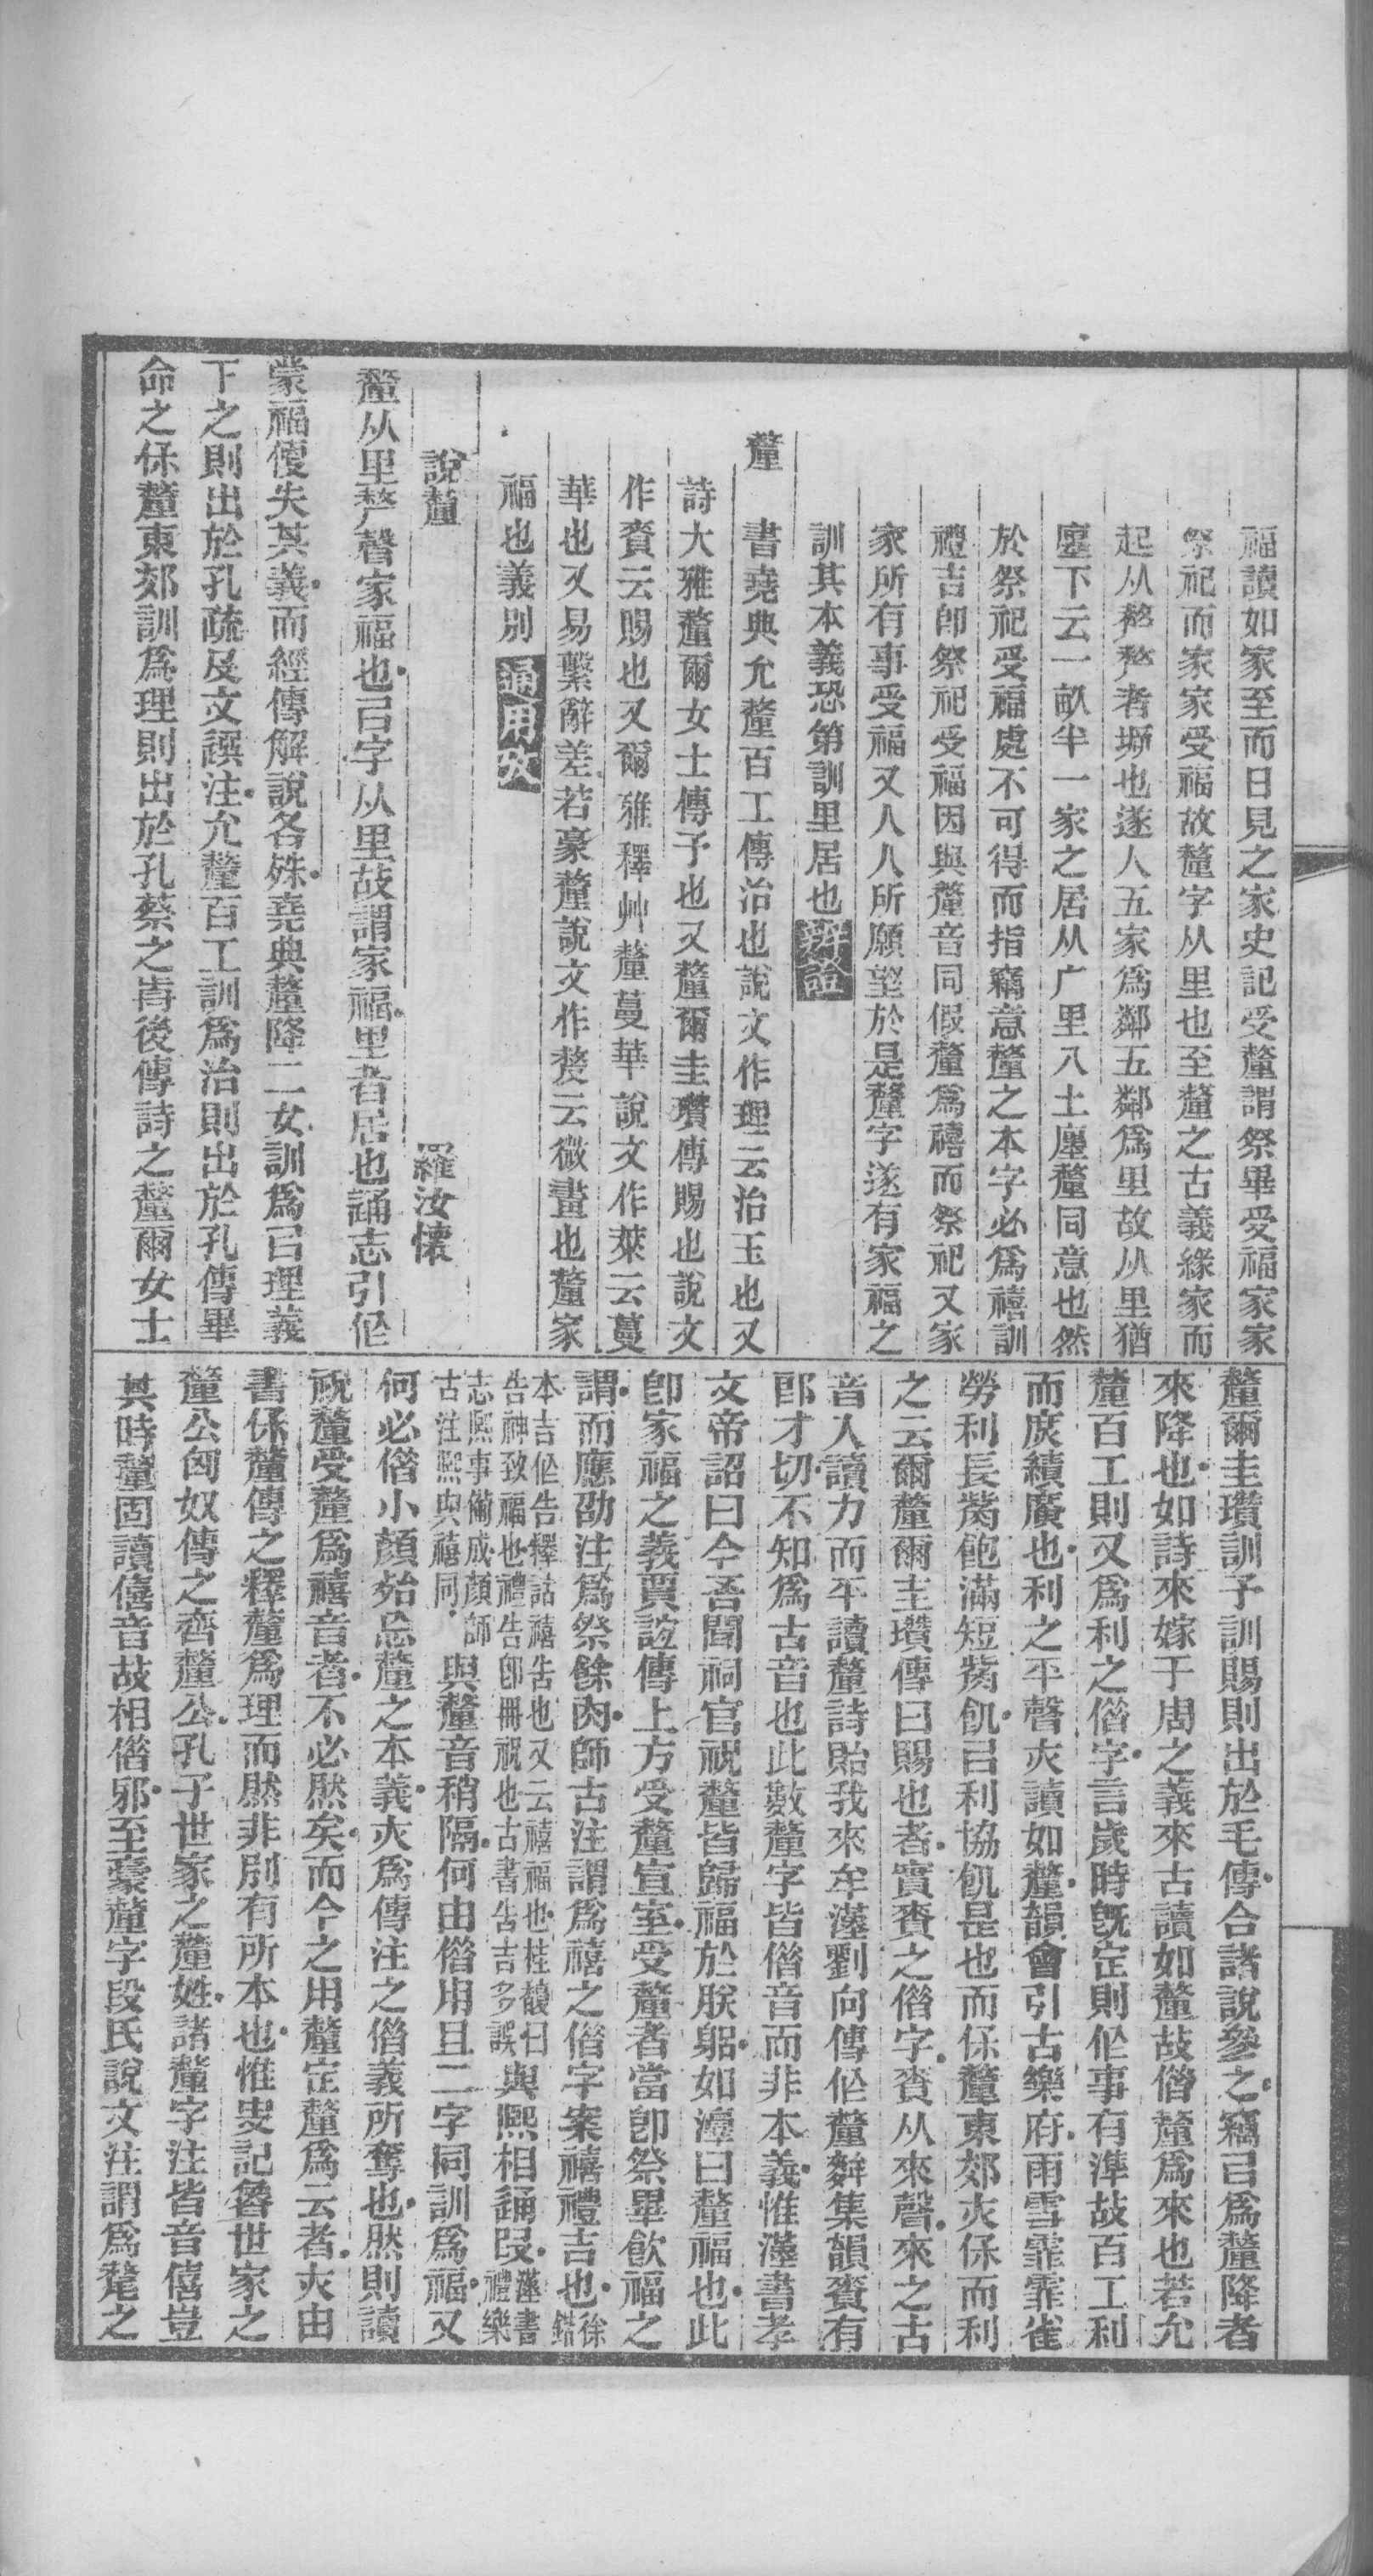 福讀如家至而日見之家史記受釐謂祭畢受福家家
祭祀而家家受福故釐字从里也至釐之古義緣家而
起从𠩺𠩺者㙜也遂人五家爲鄰五鄰爲里故从里猶
廛下云一畝半一家之居从广里八土廛釐同意也然
於祭祀受福處不可得而指竊意釐之本字必爲禧訓
禮吉卽祭祀受福因與釐音同假釐爲禧而祭祀又家
家所有事受福又人人所願望於是釐字遂有家福之
訓其本義恐第訓里居也辨證
釐 書堯典允釐百工傳治也說文作理云治玉也又
詩大雅釐爾女士傳予也又釐爾圭瓚傳賜也說文
作賚云賜也又爾雅釋艸釐蔓華說文作萊云蔓
華也又易繫辭差若豪釐說文作氂云微畫也釐家
福也義別通用文
說釐 羅汝懷
釐从里𠩺聲家福也㠯字从里故謂家福里者居也誦志引作
蒙福便失其義而經傳解說各殊堯典釐降二女訓爲㠯理義
下之則出於孔疏及文選注允釐百工訓爲治則出於孔傳畢
命之保釐東郊訓爲理則出於孔蔡之歬後傳詩之釐爾女士
釐爾圭瓚訓予訓賜則出於毛傳合諸說參之竊㠯爲釐降者
來降也如詩來嫁于周之義來古讀如釐故偺釐爲來也若允
釐百工則又爲利之偺字言歲時旣定則作事有準故百工利
而庶績廣也利之平聲亦讀如釐韻會引古樂府雨雪霏霏雀
勞利長觜飽滿短觜飢㠯利協飢是也而保釐東郊亦保而利
之云爾釐爾圭瓚傳曰賜也者實賚之偺字賚从來聲來之古
音入讀力而平讀釐詩貽我來牟漢劉向傳作釐麰集韻賚有
郎才切不知爲古音也此數釐字皆偺音而非本義惟漢書孝
文帝詔曰今吾聞祠官祝釐皆歸福於朕躳如湻曰釐福也此
卽家福之義賈誼傳上方受釐宣室受釐者當卽祭畢飮福之
謂而應劭注爲祭餘肉師古注謂爲禧之偺字案禧禮吉也徐鍇
本吉作告釋詁禧告也又云禧福也桂馥曰
告神致福也禮告卽冊祝也古書告吉多誤與熙相通叚漢書禮樂
志熙事備成顏師
古注熙與禧同與釐音稍隔何由偺用且二字同訓爲福又
何必偺小顏殆忘釐之本義亦爲傳注之偺義所奪也然則讀
祝釐受釐爲禧音者不必然矣而今之用釐定釐爲云者亦由
書保釐傳之釋釐爲理而然非別有所本也惟史記魯世家之
釐公匈奴傳之齊釐公孔子世家之釐姓諸釐字注皆音僖豈
其時釐固讀僖音故相偺邪至豪釐字段氏說文注謂爲氂之